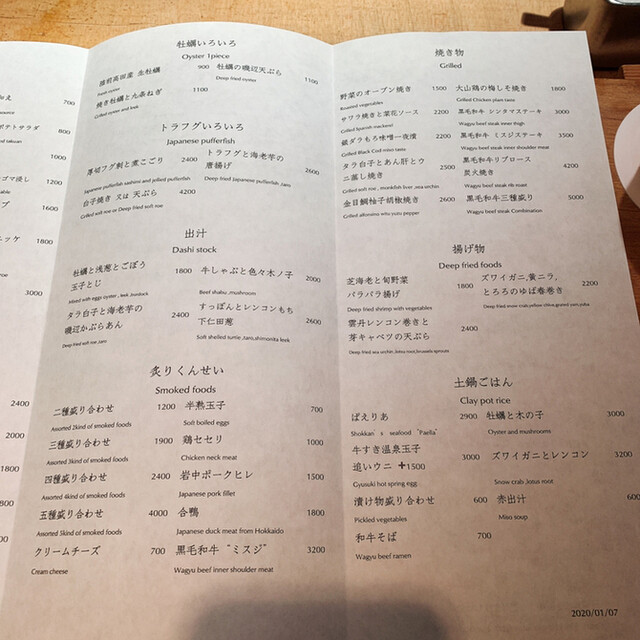 700
ポテトサラダ 800
1000
ゴマ浸し 1200
1600
1800
3000
2400
2000
牡蠣いろいろ
Oyster 1piece
陸前高田産 生牡蠣 900
Fresh oyster
焼き牡蠣と九条ねぎ 1100
Grilled oyster and leek
牡蠣の磯辺天ぷら 1100
Deep fried oyster
トラフグいろいろ
Japanese pufferfish
厚切フグ刺と煮こごり 2400
Japanese pufferfish sashimi and jellied pufferfish
白子焼き 又は 天ぷら 4200
Grilled milt roe or Deep fried soft roe
トラフグと海老芋の
唐揚げ 2600
Deep fried Japanese pufferfish ,taro
出汁
Dashi stock
牡蠣と浅葱とごぼう
玉子とじ 1800
Mixed with eggs oyster , leek ,burdock
タラ白子と海老芋の
磯辺かぶらあん 2400
Deep fried soft roe ,taro
牛しゃぶと色々木ノ子 2000
Beef shabu ,mushroom
すっぽんとレンコンもち
下仁田葱 2600
Soft shelled turtle ,taro,shimonita leek
炙りくんせい
Smoked foods
二種盛り合わせ 1200
Assorted 2kind of smoked foods
三種盛り合わせ 1900
Assorted 3kind of smoked foods
四種盛り合わせ 2400
Assorted 4kind of smoked foods
五種盛り合わせ 4000
Assorted 5kind of smoked foods
クリームチーズ 700
Cream cheese
半熟玉子 700
Soft boiled eggs
鶏セセリ 1000
Chicken neck meat
岩中ポークヒレ 1500
Japanese pork fillet
合鴨 1800
Japanese duck meat from Hokkaido
黒毛和牛“ミスジ” 3200
Wagyu beef inner shoulder meat
焼き物
Grilled
野菜のオーブン焼き 1500
Roasted vegetables
サワラ焼きと菜花ソース 2200
Grilled Spanish mackerel
銀ダラもろ味噌一夜漬 2200
Grilled Black Cod miso taste
タラ白子とあん肝とウ
ニ蒸し焼き 2500
Grilled soft roe , monkfish liver ,sea urchin
金目鯛柚子胡椒焼き 2600
Grilled alfonsino whit yuzu pepper
大山鶏の梅しそ焼き 1800
Grilled Chicken plam taste
黒毛和牛 シンタマステーキ 3000
Wagyu beef steak inner thigh
黒毛和牛 ミスジステーキ 3500
Wagyu beef steak inner shoulder meat
黒毛和牛リブロース
炭火焼き 4000
Wagyu beef steak rib roast
黒毛和牛三種盛り 5000
Wagyu beef steak Combination
揚げ物
Deep fried foods
芝海老と旬野菜
バラバラ揚げ 2200
Deep fried shrimp with vegetables
雲丹レンコン巻きと
芽キャベツの天ぷら 2400
Deep fried sea urchin ,lotus root,brussels sprouts
ズワイガニ,黄ニラ,
とろろのゆば春巻き 2200
Deep fried snow crab,yellow chive,grated yam,yuba
土鍋ごはん
Clay pot rice
ぱえりあ 2900
Shokkan´s seafood “Paella”
牛すき温泉玉子 3000
追いウニ +1500
Gyusuki hot spring egg
漬け物盛り合わせ 600
Pickled vegetables
和牛そば 700
Wagyu beef ramen
牡蠣と木の子 3000
Oyster and mushrooms
ズワイガニとレンコン 3200
Snow crab ,lotus root
赤出汁 600
Miso soup
2020/01/07